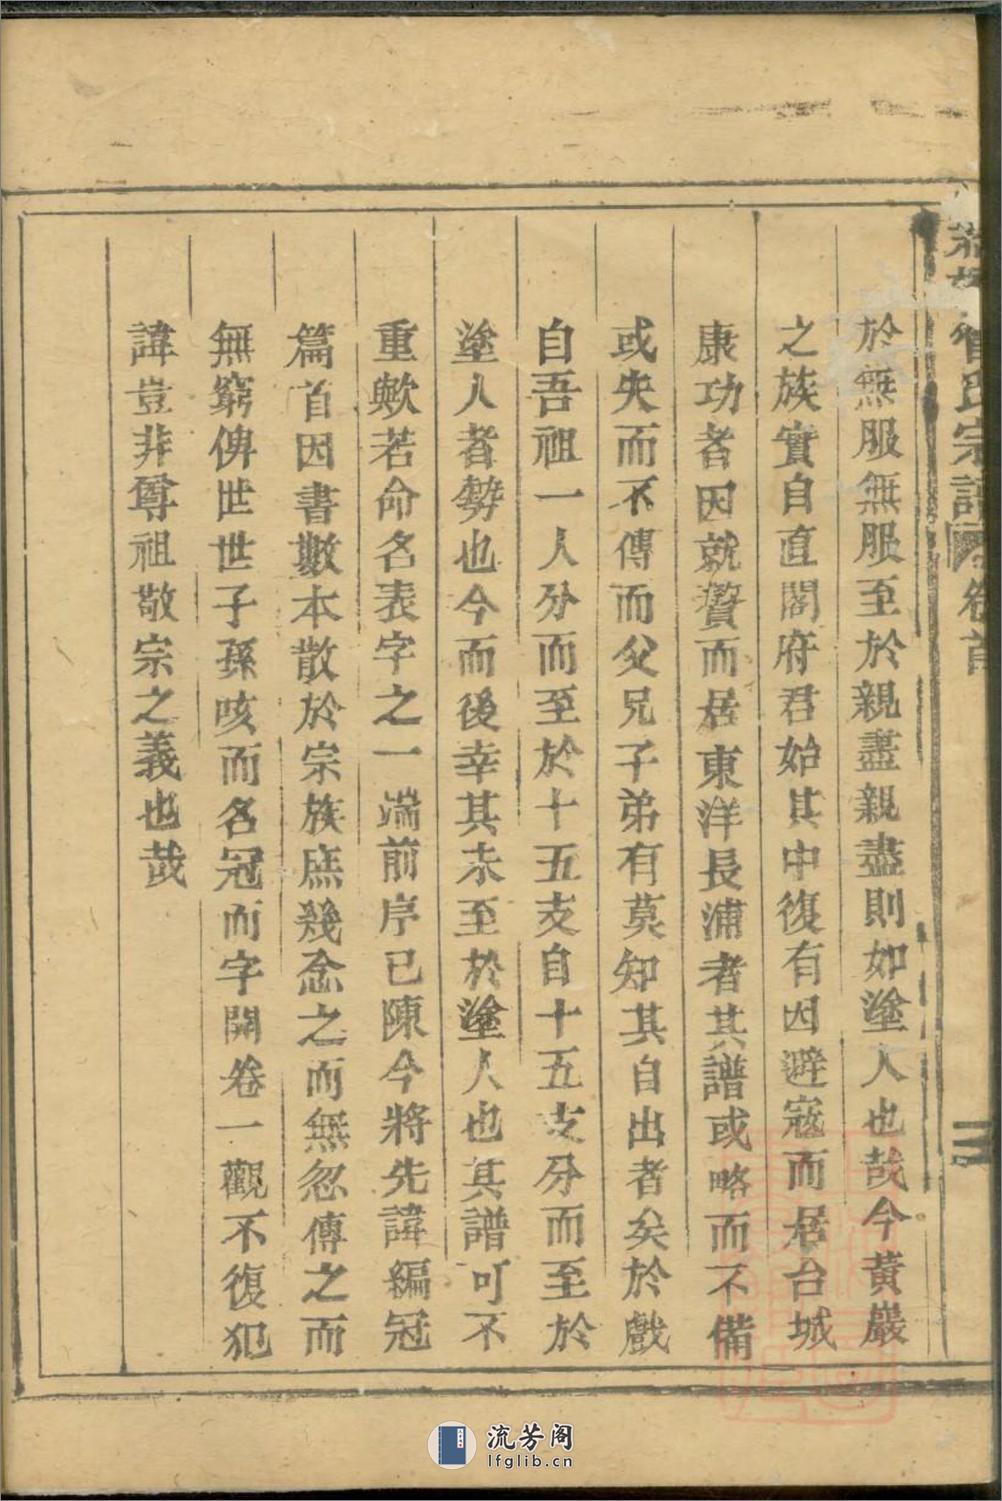 氏宗譜 卷首
於無服無服至於親盡親盡則如塗人也哉今黃巖
之族實自直閣府君始其中復有因避寇而居台城
康功者因就贅而居東洋長浦者其譜或略而不備
或失而不傳而父兄子弟有莫知其自出者矣於戲
自吾祖一人分而至於十五支自十五支分而至於
塗人者勢也今而後幸其未至於塗人也其譜可不
重歟若命名表字之一端前序已陳今將先諱編冠
篇首因書數本散於宗族庶幾念之而無忽傳之而
無窮俾世世子孫咳而名冠而字開卷一觀不復犯
諱豈非尊祖敬宗之義也哉
流芳阁
lfglib.cn